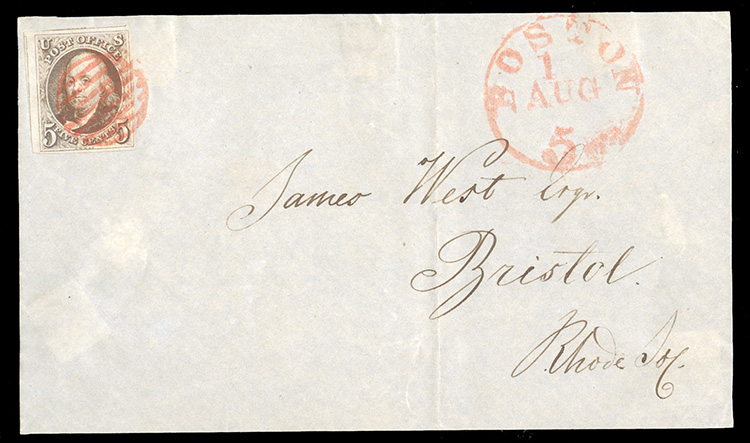 U S
POST OFFICE
FIVE CENTS
5 5
BOSTON
1
AUG
5
James West Esqr.
Bristol.
Rhode Isl.